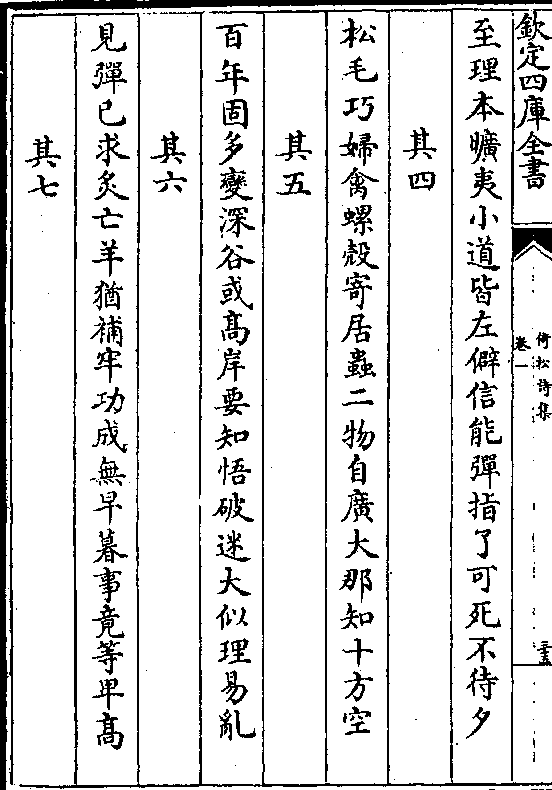 欽定四庫全書
倚松詩集
卷一
至理本曠夷小道皆左僻信能彈指了可死不待夕
其四
松毛巧婦禽螺殻寄居蟲二物自廣大那知十方空
其五
百年固多變深谷或髙岸要知悟破迷大似理易亂
其六
見彈已求炙亡羊猶補牢功成無早暮事竟等卑髙
其七